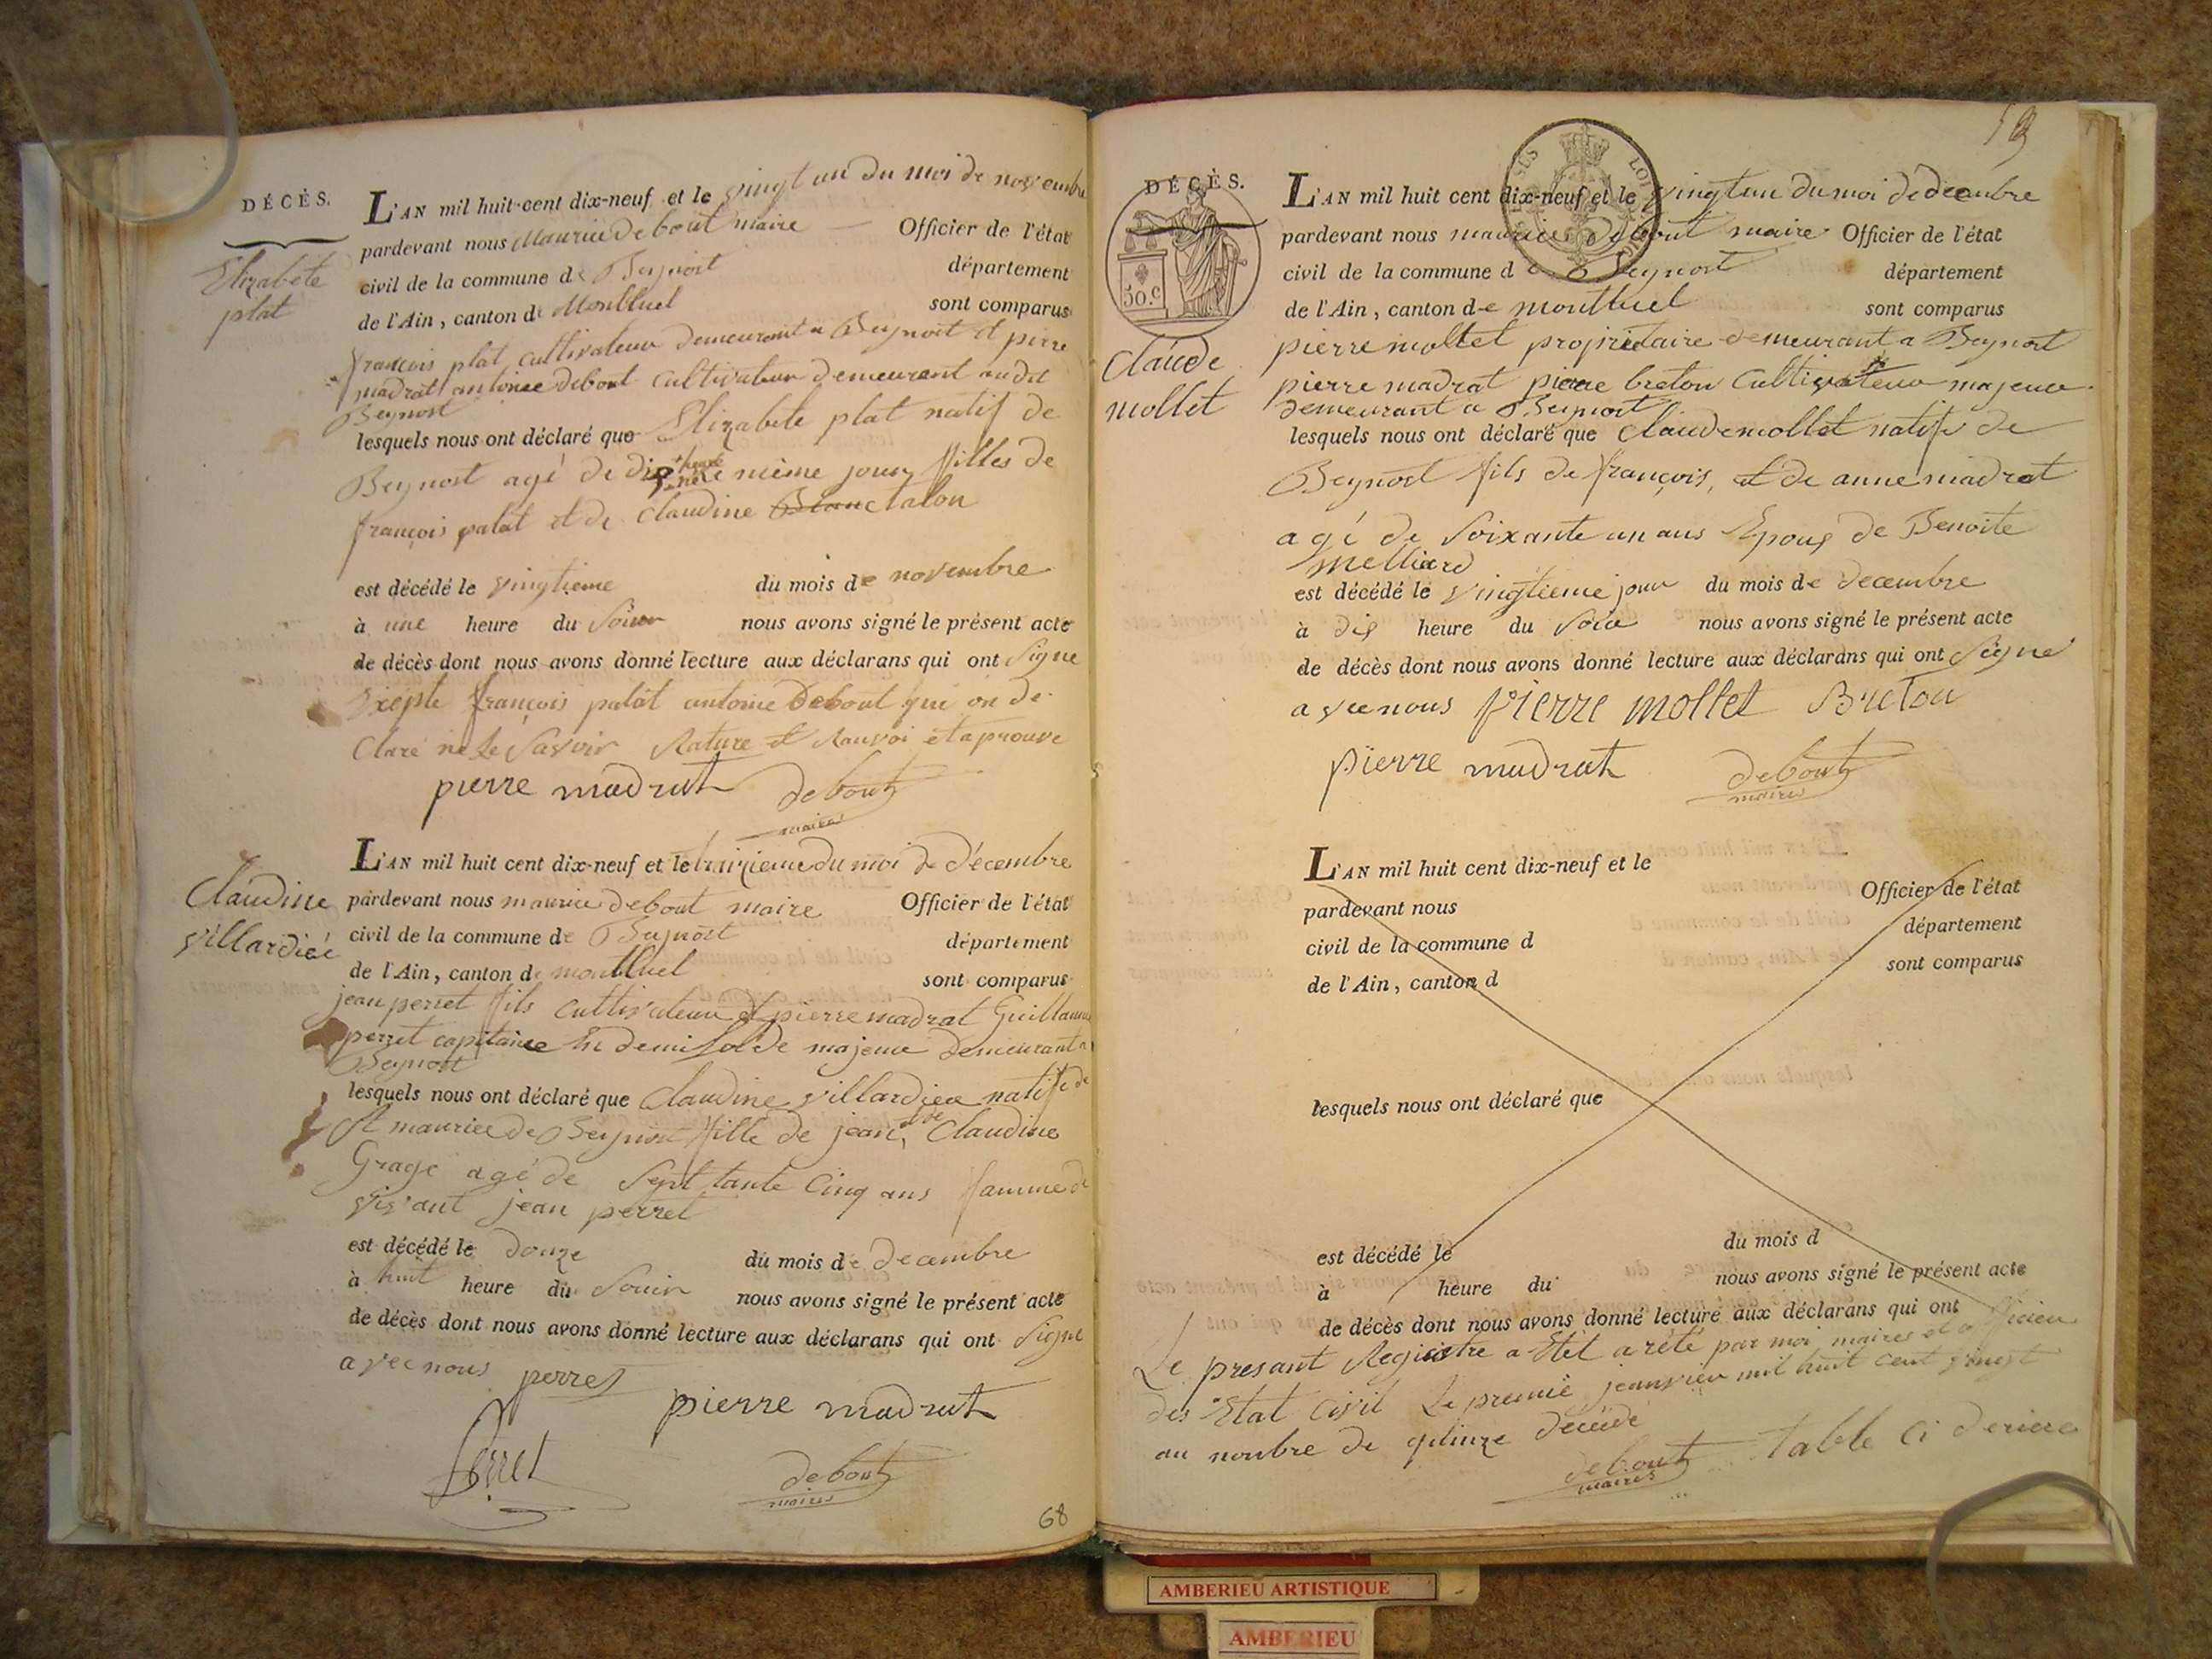 DÉCÈS.
Elizabete
plat
L'AN mil huit cent dix-neuf et le vingt un du moi de novembre
pardevant nous Maurice debout maire Officier de l'état
civil de la commune de Beynost département
de l'Ain, canton de Montluel sont comparus
françois plat cultivateur demeurant a Beynost et pierre
madrat antoinee debout cultivateur demeurant audit
Beynost
lesquels nous ont déclaré que Elizabete plat natif de
Beynost agé de même jour filles de
françois palat et de Claudine Blanc talon
est décédé le vingtieme du mois de novembre
à une heure du Soir nous avons signé le présent acte
de décès dont nous avons donné lecture aux déclarans qui ont Signe
Exepte françois palat antoine Debout qui on de
Claré ne le Savoir Rature et Ranvoi et aprouve
pierre madrat debout
maires
Claudine
villardieé
L'AN mil huit cent dix-neuf et le treizieme du moi de Décembre
pardevant nous maurice debout maire Officier de l'état
civil de la commune de Beynost département
de l'Ain, canton de montluel sont comparus
jean perret fils cultivateur et pierre madrat Guillaume
perret capitaine En demi solde majeure demeurant a
Beynost
lesquels nous ont déclaré que Claudine villardiea natife de
St maurice de Beynost fille de jean, et de Claudine
Grage agé de Septtante Cinq ans famme de
vivant jean perret
est décédé le douze du mois de decembre
à huit heure du Souir nous avons signé le présent acte
de décès dont nous avons donné lecture aux déclarans qui ont Signe
avec nous perret
pierre madrat
Perret debout
maires
68
59
DÉCÈS.
50.c
Claude
mollet
L'AN mil huit cent dix-neuf et le vingt un du moi de decembre
pardevant nous maurice debout maire Officier de l'état
civil de la commune de Beynost département
de l'Ain, canton de montluel sont comparus
pierre mollet proprietaire demeurant a Beynost
pierre madrat pierre breton Cultivateur majeur
demeurant a Beynost
lesquels nous ont déclaré que Claude mollet natife de
Beynost fils de françois, et de anne madrat
agé de Soixante un ans Epoux de Benoite
melliard
est décédé le vingtieme jour du mois de decembre
à dix heure du Soir nous avons signé le présent acte
de décès dont nous avons donné lecture aux déclarans qui ont Signé
avec nous pierre mollet Breton
pierre madrat debout
maires
L'AN mil huit cent dix-neuf et le
pardevant nous Officier de l'état
civil de la commune d département
de l'Ain, canton d sont comparus
lesquels nous ont déclaré que
est décédé le du mois d
à heure du nous avons signé le présent acte
de décès dont nous avons donné lecture aux déclarans qui ont
Le presant Registre a Etét arété par moi maires et officier
des Etat Civil Le premié jeanvier mil huit cent vingt
au nonbre de quinze décédé
debout Table Ci deriere
maires
AMBERIEU ARTISTIQUE
AMBERIEU